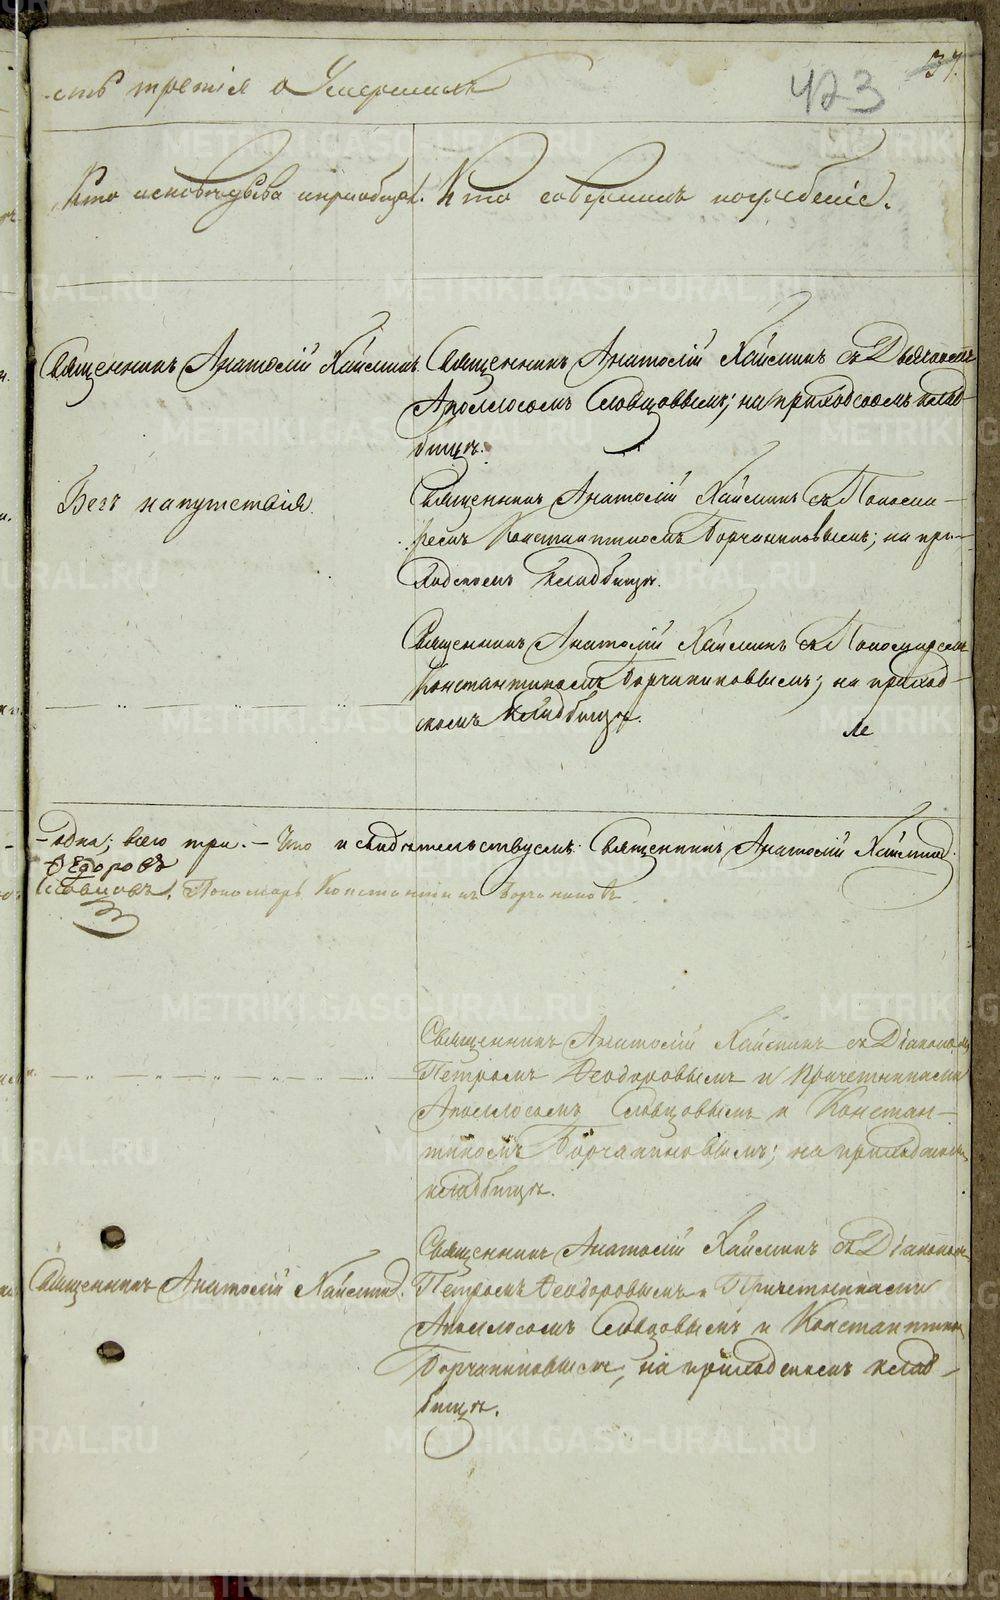 37.
423
сть третія о Умершихъ
Кто исповѣдывалъ и пріобщал. Кто совершилъ погребеніе.
Священникъ Анатолій Хайминъ. Священникъ Анатолій Хайминъ съ Дьячкомъ
Аполлосомъ Словцовымъ; на приходскомъ клад-
бищѣ.
Безъ напутствія. Священникъ Анатолій Хайминъ съ Понома-
ремъ Константиномъ Борчаниновымъ; на при-
ходскомъ кладбищѣ.
Священникъ Анатолій Хайминъ съ Пономаремъ
Константиномъ Борчаниновымъ; на приход-
скомъ кладбищѣ.
- одна; всего три. - Что и свидѣтельствуемъ: Священникъ Анатолій Хайминъ.
Ѳедоровъ
Словцовъ. Пономарь Константинъ Борчаниновъ.
Священникъ Анатолій Хайминъ съ Діакономъ
Петромъ Ѳеодоровымъ и Причетниками
Аполлосомъ Словцовымъ и Констан-
тиномъ Борчаниновымъ; на приходскомъ
кладбищѣ.
Священникъ Анатолій Хайминъ съ Діакономъ
Священникъ Анатолій Хайминъ. Петромъ Ѳеодоровымъ и Причетниками
Аполлосомъ Словцовымъ и Константиномъ
Борчаниновымъ, на приходскомъ клад-
бищѣ.
METRIKI.GASO-URAL.RU